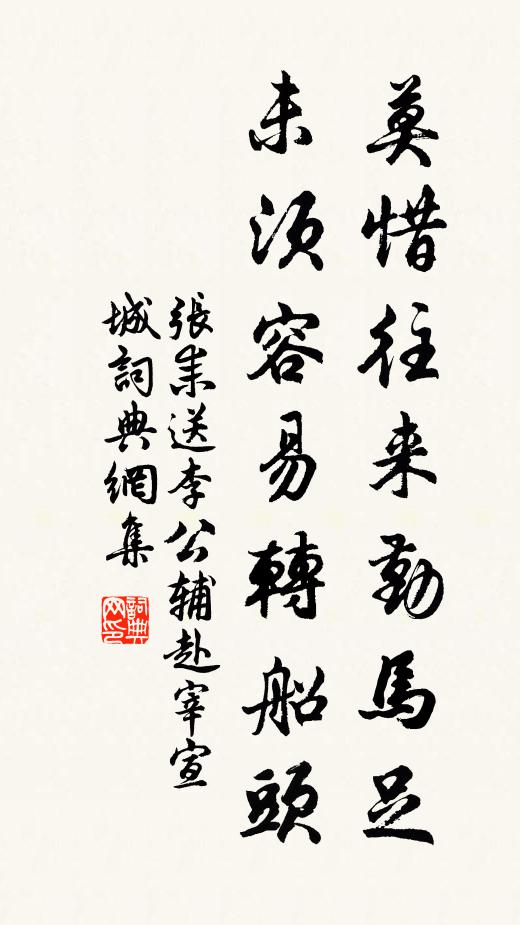 莫惜往来勤馬足
未須容易轉船頭
張耒送李公輔赴宰宣
城詞典網集
詞典网印